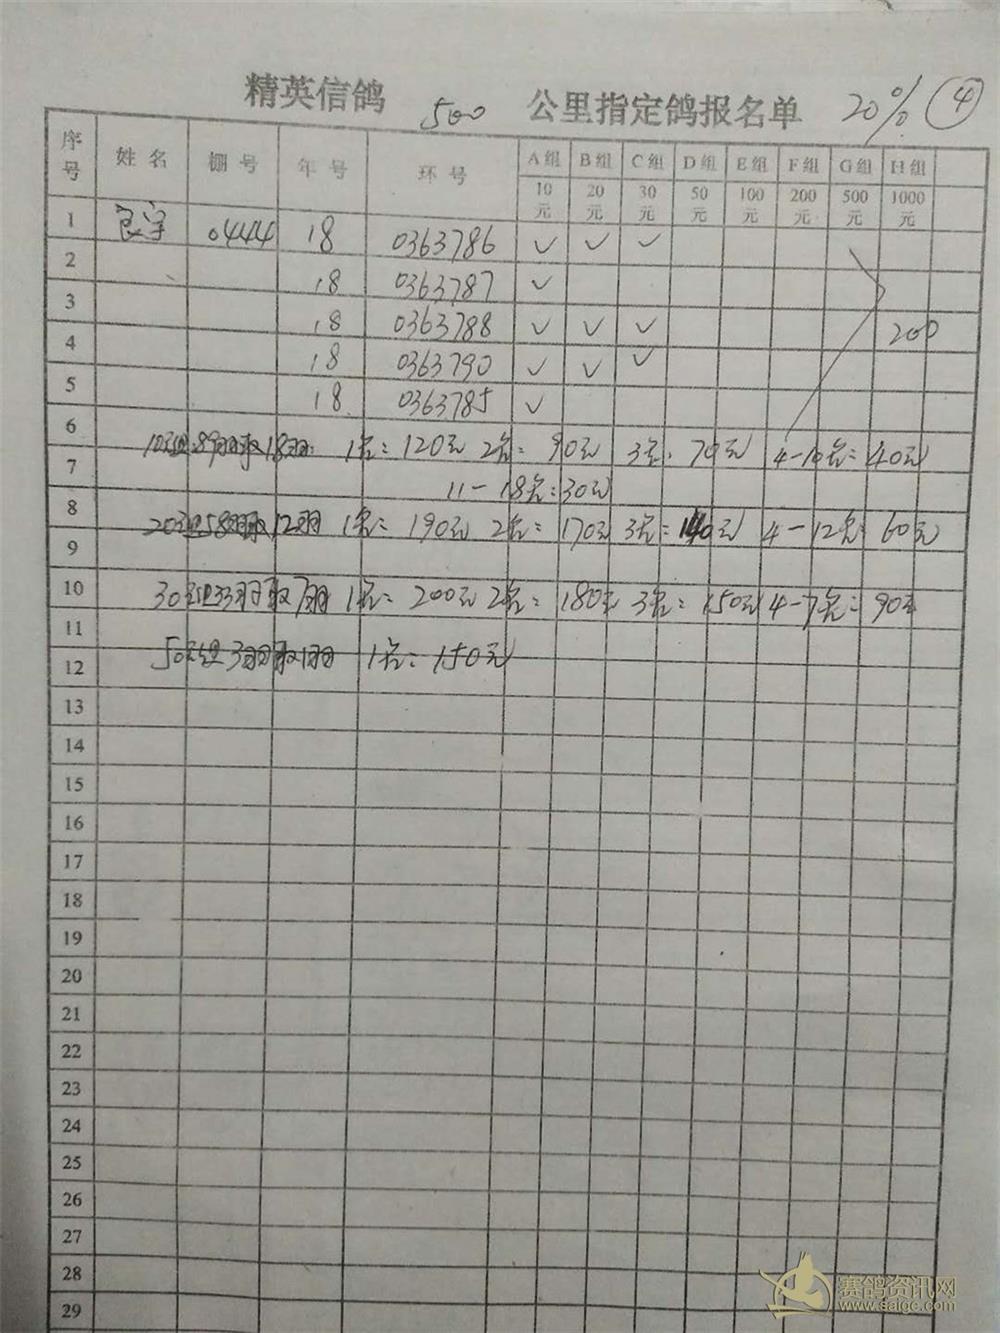 精英信鸽 500 公里指定鸽报名单 20% ④
序号 姓名 棚号 年号 环号 A组 B组 C组 D组 E组 F组 G组 H组
10元 20元 30元 50元 100元 200元 500元 1000元
1 良宇 0444 18 0363786 ✓ ✓ ✓
2 18 0363787 ✓
3 18 0363788 ✓ ✓ ✓ 200
4 18 0363790 ✓ ✓ ✓
5 18 0363785 ✓
6 10元组:89羽取18羽: 1名:120元 2名:90元 3名:70元 4-10名:40元
7 11-18名:30元
8 20元组58羽取12羽 1名:190元 2名:170元 3名:140元 4-12名:60元
9
10 30元组33羽取7羽 1名:200元 2名:180元 3名:150元 4-7名:90元
11
12 50元组3羽取1羽 1名:150元
13
14
15
16
17
18
19
20
21
22
23
24
25
26
27
28
29
赛鸽资讯网
www.saigc.com